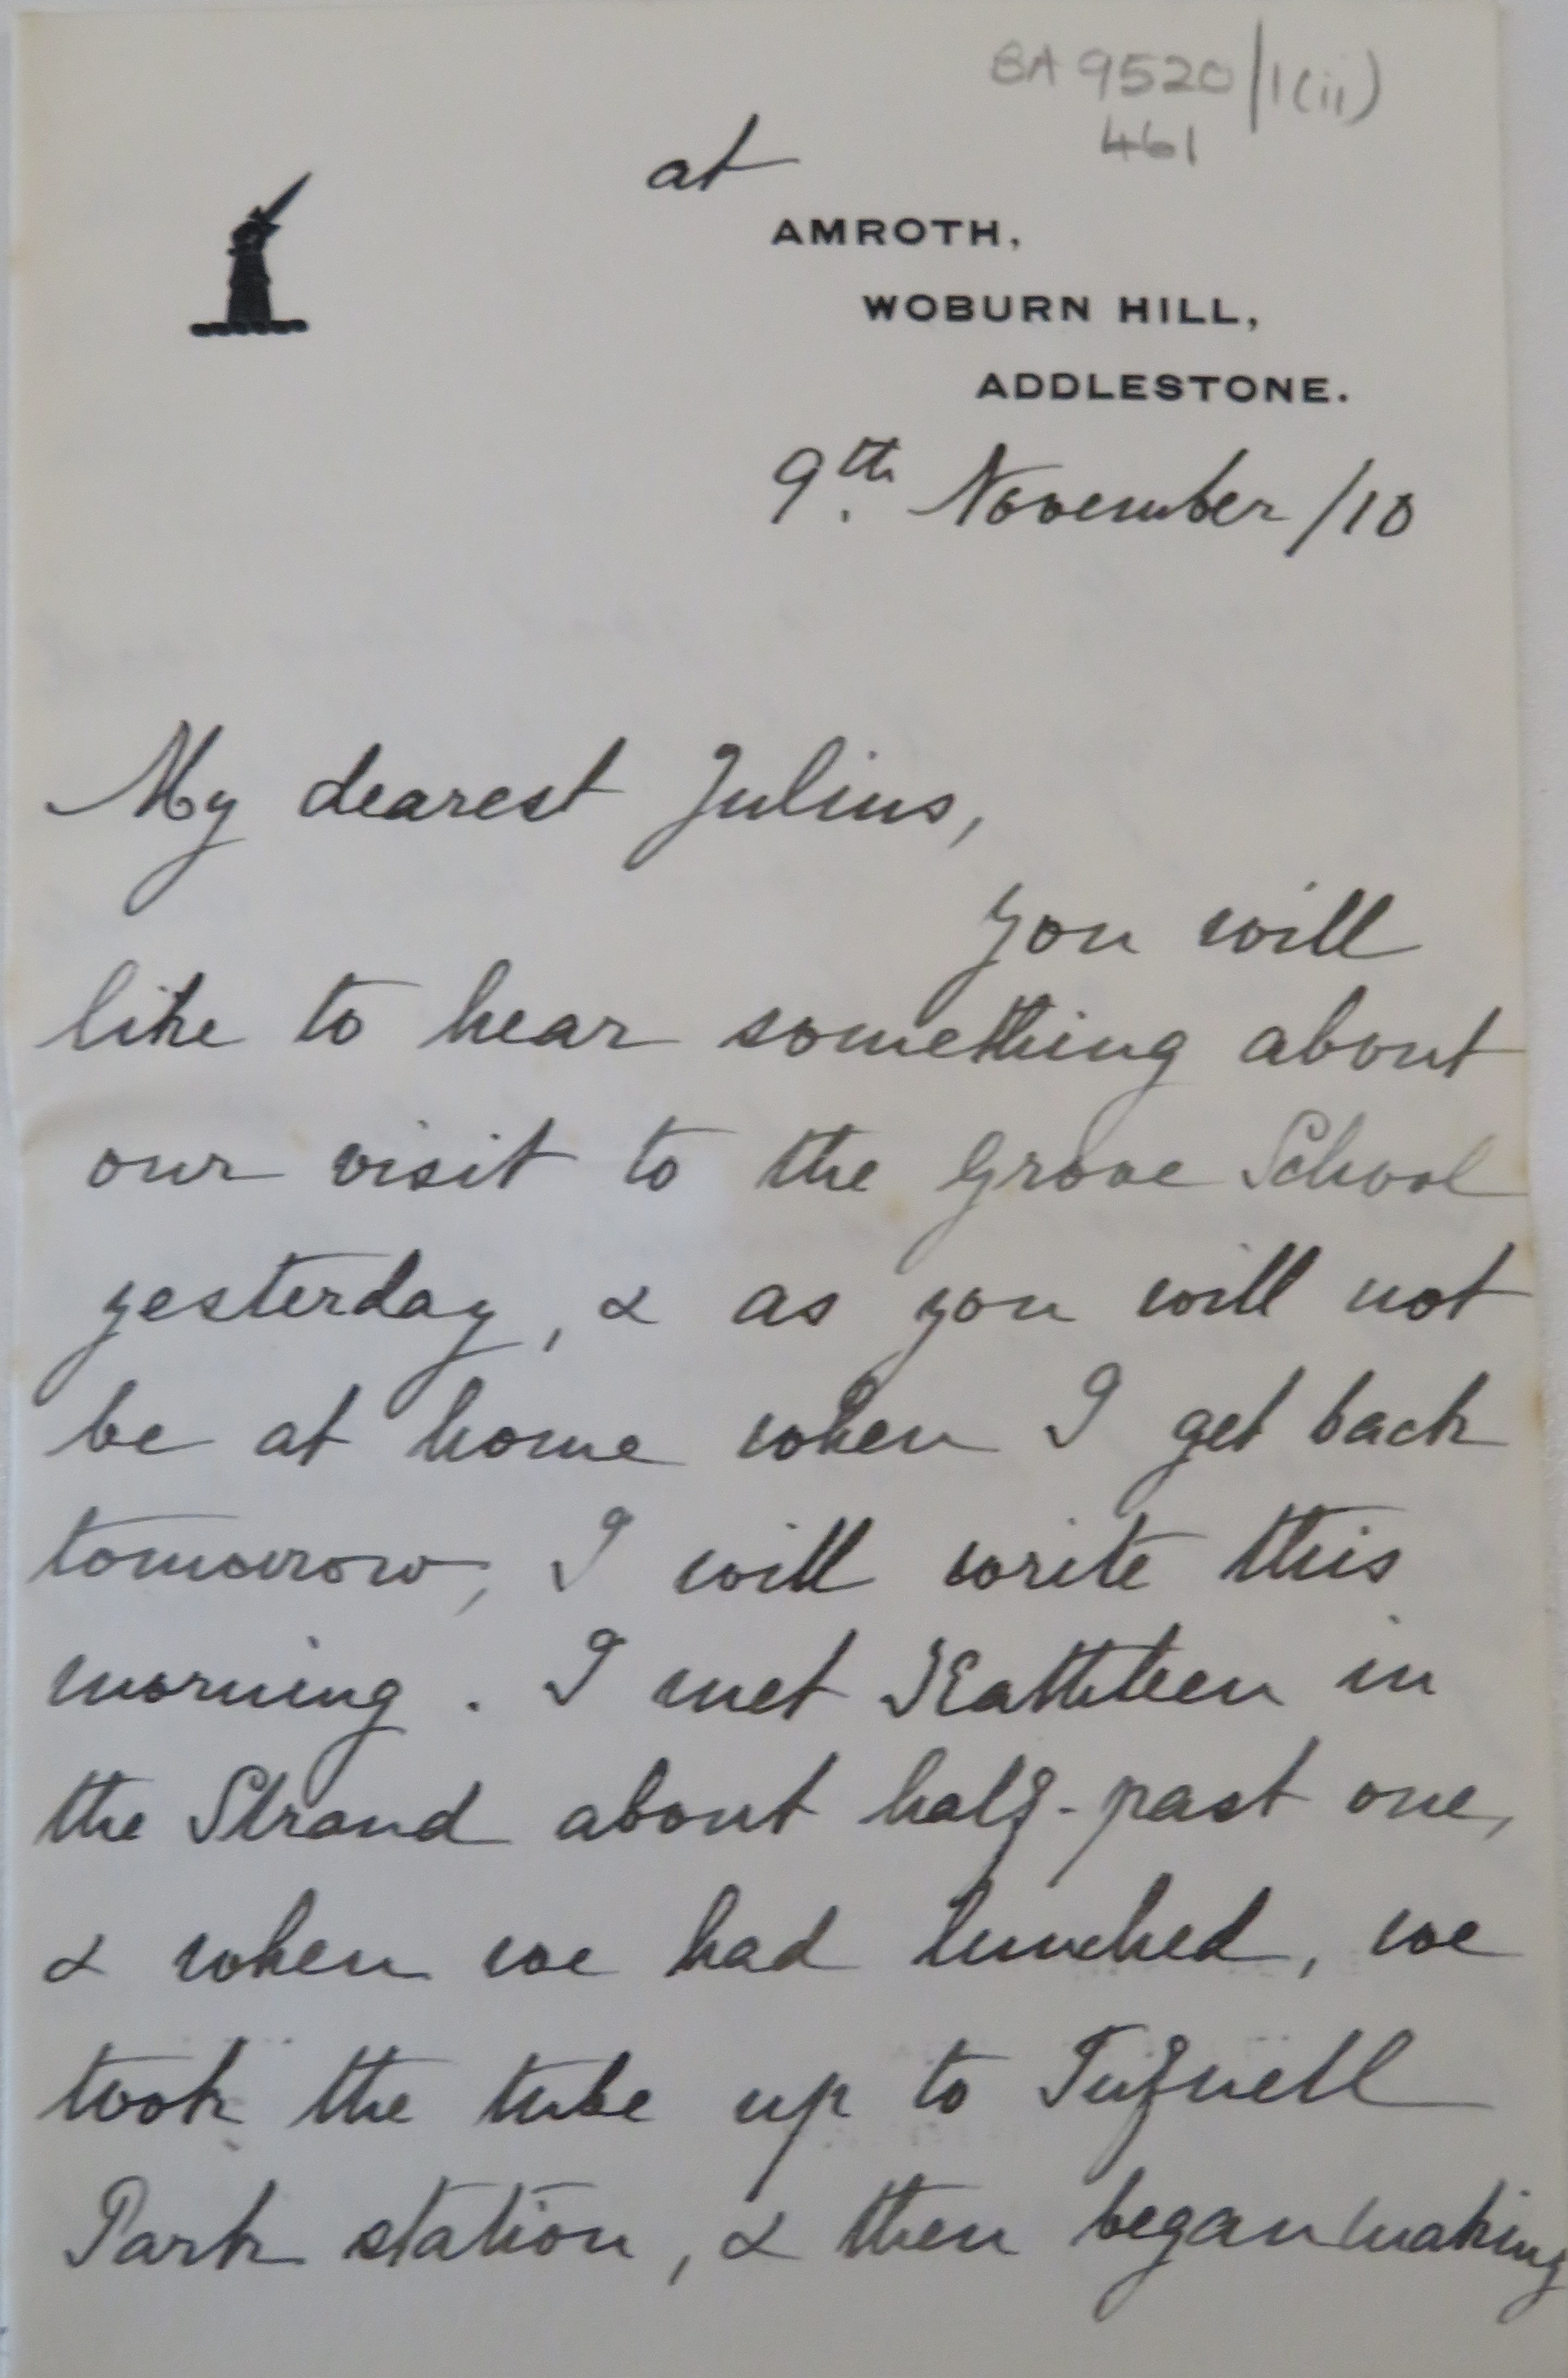 BA 9520/1(ii)
461
at
AMROTH,
WOBURN HILL,
ADDLESTONE.
9th. November /10
My dearest Julius,
you will
like to hear something about
our visit to the Grove School
yesterday, & as you will not
be at home when I get back
tomorrow, I will write this
morning. I met Kathleen in
the Strand about half-past one,
& when we had lunched, we
took the tube up to Tufnell
Park station, & then began making